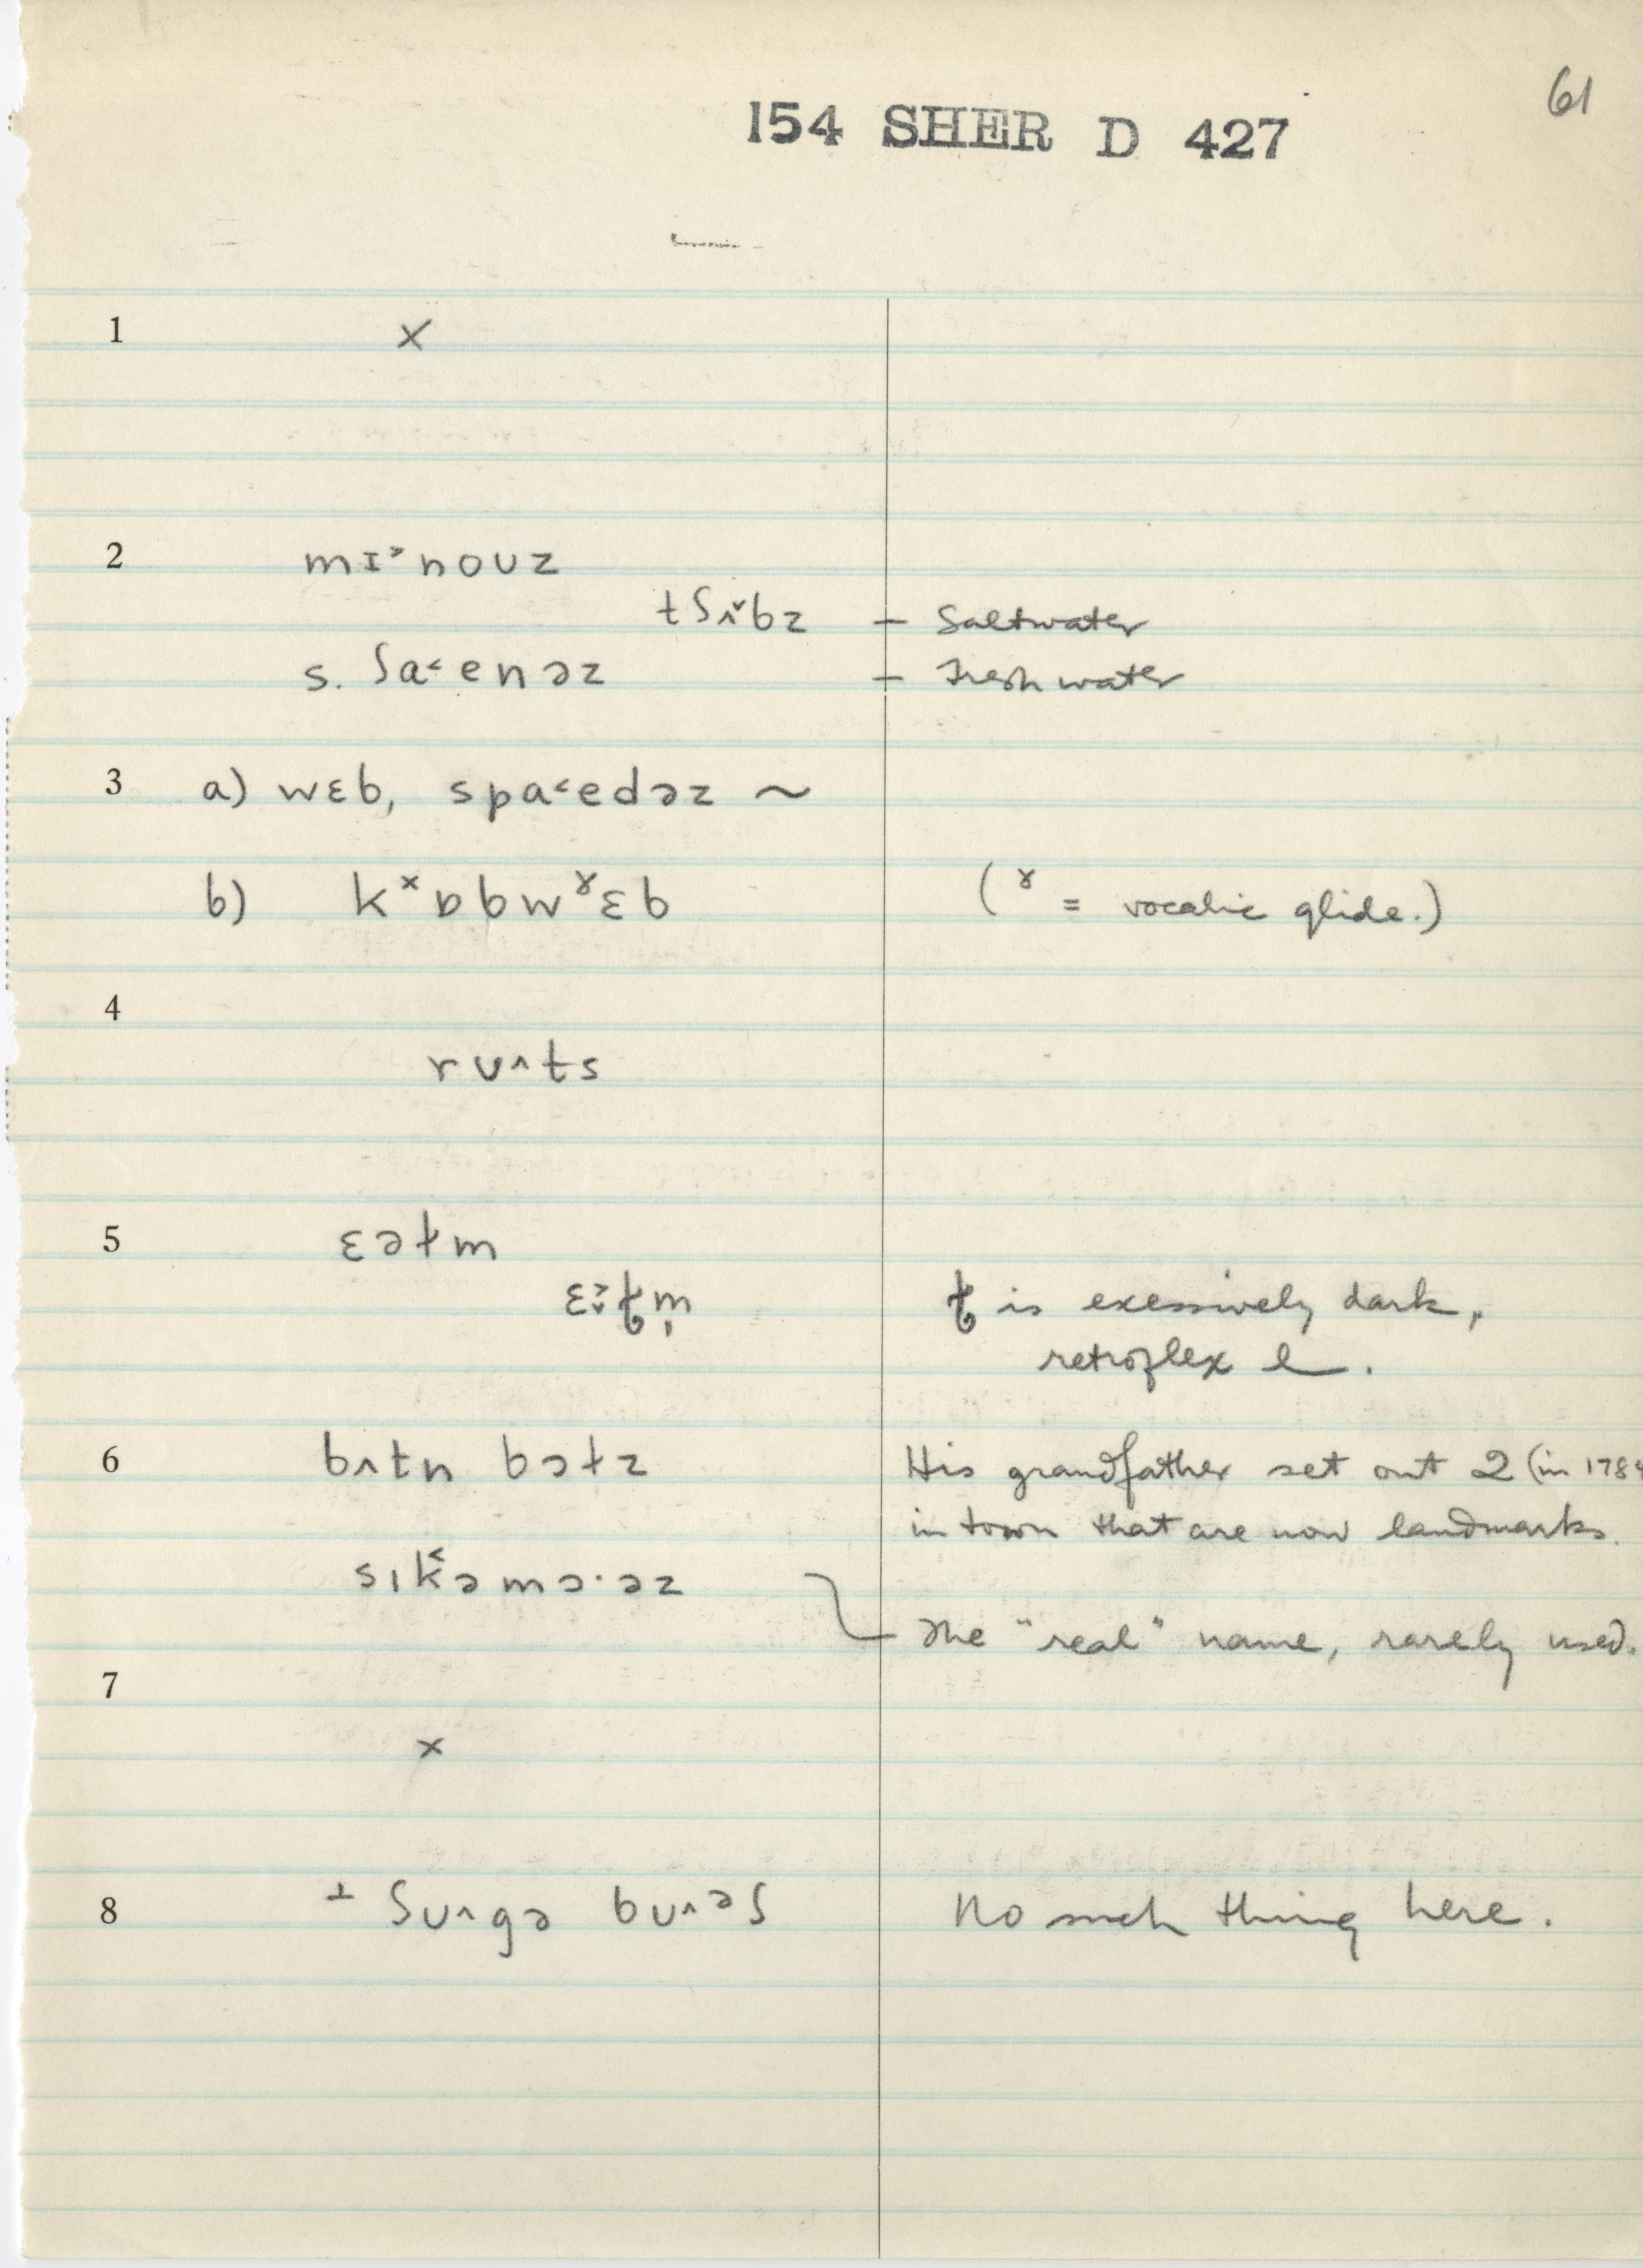 61
154 SHER D 427
1 ×
2 mɪ˃nouz
tʃʌ˅bz – Saltwater
s. ʃa˂enəz – Freshwater
3 a) wɛb, spa˂edəz ~
b) kˣɒbwˠɛb (ˠ = vocalic glide.)
4
rʊ˄ts
5 ɛəɫm
is exessively dark,
retroflex l.
6 bʌtn bɔɫz His grandfather set out 2 (in 1784
in town that are now landmarks.
sɪk˂əmɔ·əz
The "real" name, rarely used.
7
×
8 ⊥ ʃʊ˄gə bʊ˄ᵊʃ No such thing here.